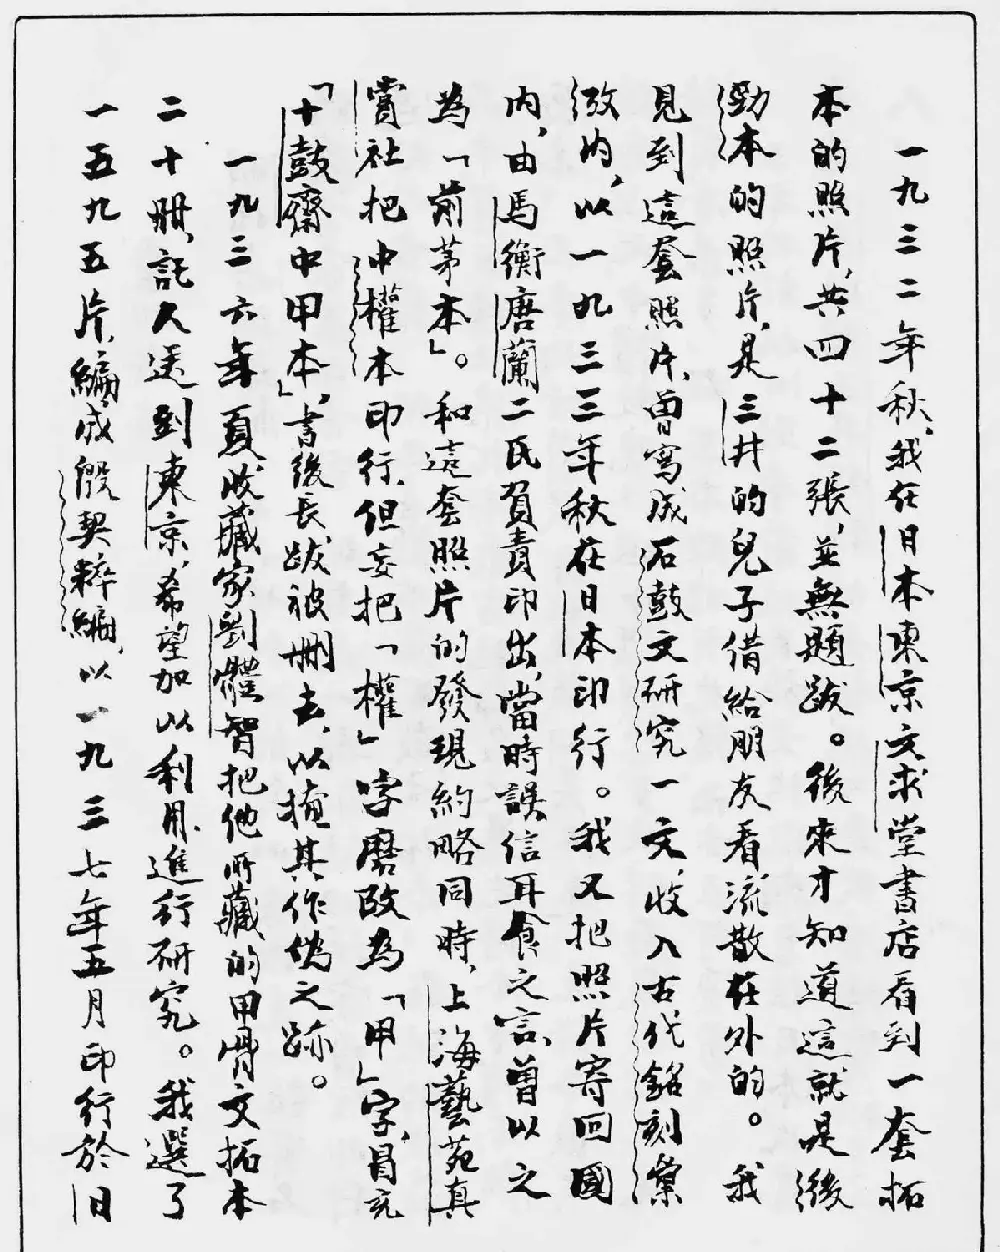 一九三二年秋，我在日本東京文求堂書店看到一套拓
本的照片，共四十二張，並無題跋。後來才知道這就是後
勁本的照片，是三井的兒子借給朋友看，流散在外的。我
見到這套照片，曾寫成石鼓文研究一文，收入古代銘刻彙
攷內，以一九三三年秋在日本印行。我又把照片寄回國
內，由馬衡唐蘭二氏負責印出，當時誤信耳食之言，曾以之
為「前茅本」。和這套照片的發現約略同時，上海藝苑真
賞社把中權本印行，但妄把「權」字磨改為「甲」字，冒充
「十鼓齋中甲本」，書後長跋被刪去，以掩其作偽之跡。
一九三六年夏，收藏家劉體智把他所藏的甲骨文拓本
二十冊，託人送到東京，希望加以利用，進行研究。我選了
一五九五片，編成殷契粹編，以一九三七年五月印行於日